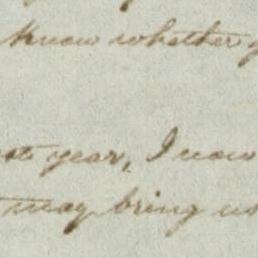 know whether
year, I now
may bring us